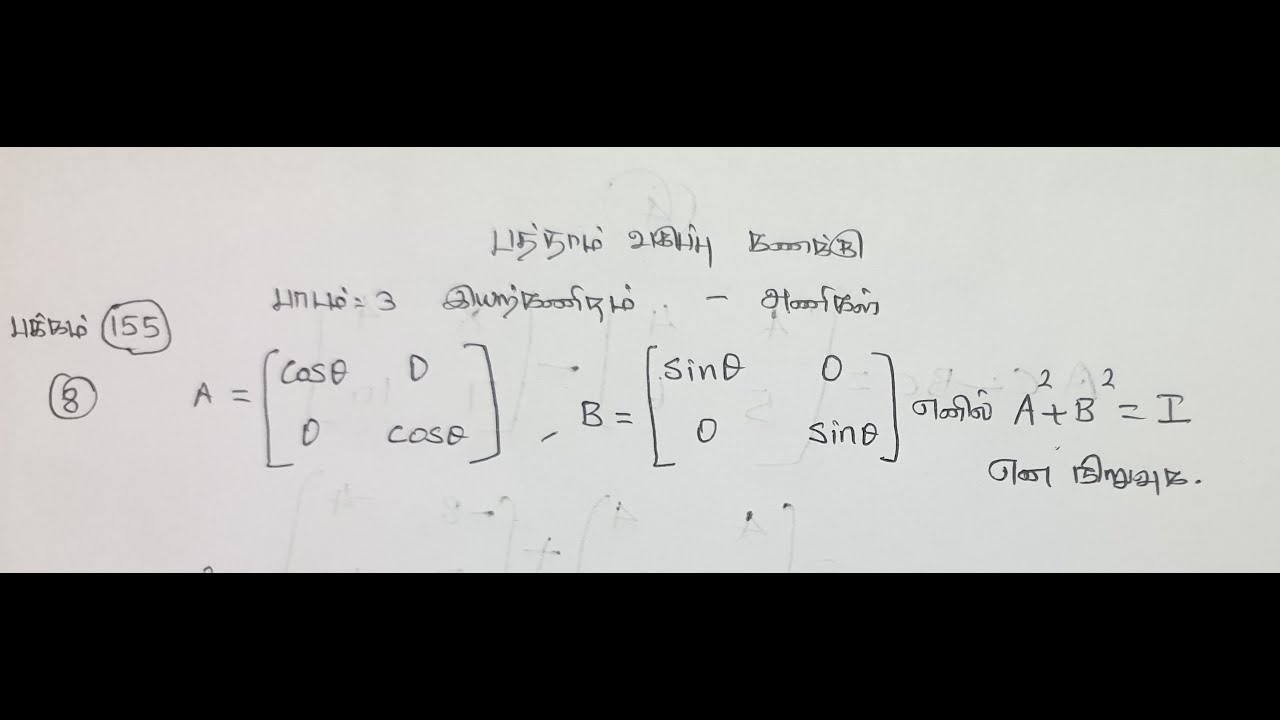 பத்தாம் வகுப்பு கணக்கு
பாடம்:- 3 இயற்கணிதம் - அணிகள்
பக்கம் 155
8 A = [cosθ 0
0 cosθ] , B = [sinθ 0
0 sinθ] எனில் A² + B² = I
என நிறுவுக.